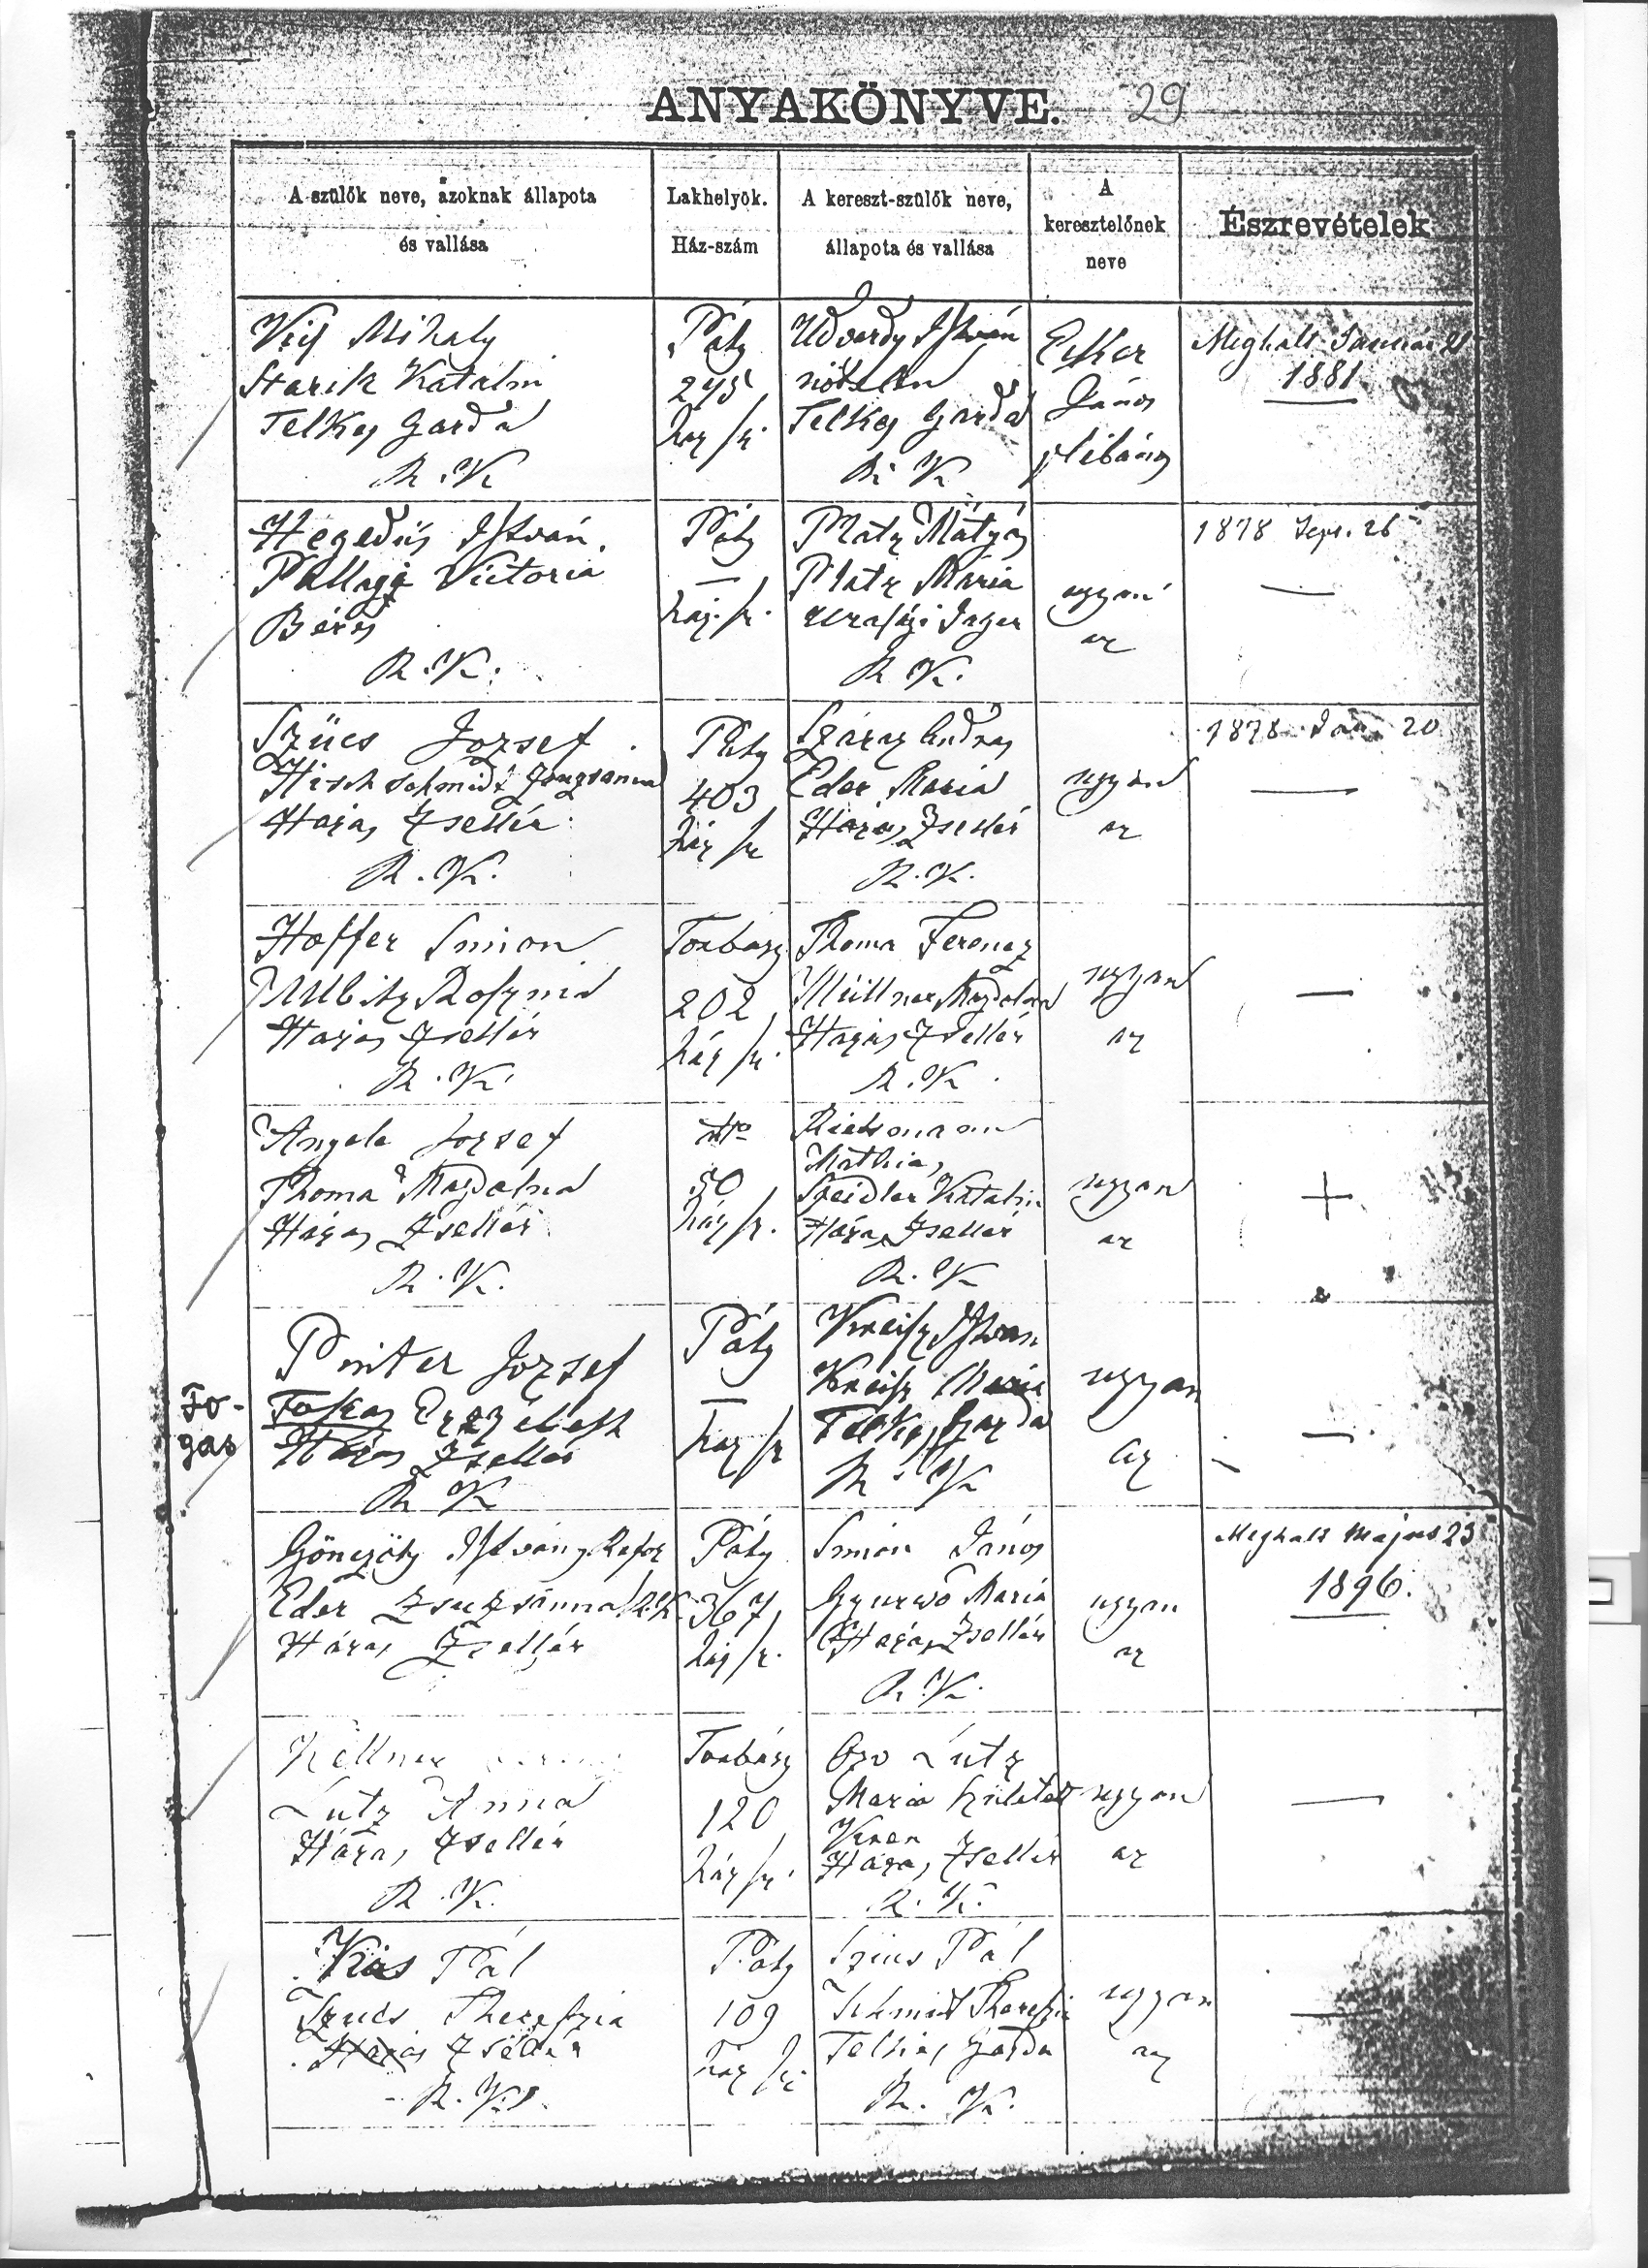 ANYAKÖNYVE. 29
A szülők neve, azoknak állapota
és vallása
Lakhelyök.
Ház-szám
A kereszt-szülők neve,
állapota és vallása
A
keresztelőnek
neve
Észrevételek
Mihaly
Starik Katalin
Telkes Garda
R. K
Páty
295
ház sz.
Udvardy István
nőtelen
Telkes Garda
R. K
János
plébános
Meghalt Január 21
1881.
Hegedüs István
Pallagi Victoria
Béres
R. K.
Páty
—
ház. sz.
Platz Mátyás
Platz Maria
R. K.
ugyan
az
1878 Sept. 26
—
Szücs Jozsef
Hirschschmidt
Házas Zsellér
R. K.
Páty
403
ház sz
Száraz András
Eder Maria
Házas Zsellér
R. K.
ugyan
az
1878 Jan. 20
—
Hoffer Simon
Házas Zsellér
R. K.
Torbágy
202
ház sz.
Thoma Ferencz
Müllner Magdolna
Házas Zsellér
R. K.
ugyan
az
—
Angele Jozsef
Thoma Magdolna
Házas Zsellér
R. K.
dtto
50
ház sz.
Mathias
Szeidler Katalin
Házas Zsellér
R. K
ugyan
az
+
Fo-
gas
Pinter Jozsef
Erzsébeth
Házas Zsellér
R K
Páty
—
ház sz
Kreisz István
Kreisz Maria
Telkes Garda
R. K
ugyan
az
—
Gönczöly István Refor
Eder Zsuzsánna R.K.
Házas Zsellér
Páty
367
ház sz.
Simon János
Maria
Házas Zsellér
R. K.
ugyan
az
Meghalt Május 23
1896.
Kellner
Lutz Anna
Házas Zsellér
R. K.
Torbágy
120
ház sz.
Lutz
Maria született
Házas Zsellér
R. K.
ugyan
az
—
Kis Pál
Szucs Therezia
Házas Zsellér
R. K.
Páty
109
ház sz
Szücs Pál
Schmidt Therezia
Telkes Garda
R. K.
ugyan
az
—